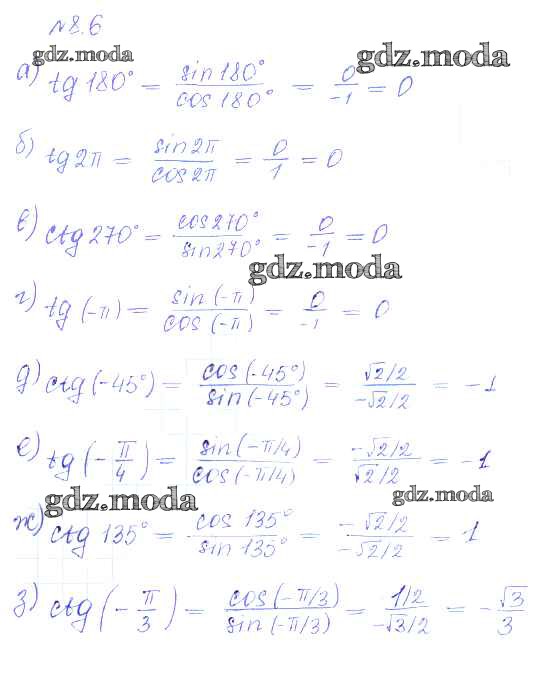 №8.6
gdz.moda gdz.moda
а) tg 180° = sin 180° / cos 180° = 0 / -1 = 0
б) tg 2π = sin 2π / cos 2π = 0 / 1 = 0
в) ctg 270° = cos 270° / sin 270° = 0 / -1 = 0
gdz.moda
г) tg (-π) = sin (-π) / cos (-π) = 0 / -1 = 0
д) ctg (-45°) = cos (-45°) / sin (-45°) = √2/2 / -√2/2 = -1
е) tg (-π/4) = sin (-π/4) / cos (-π/4) = -√2/2 / √2/2 = -1
gdz.moda gdz.moda
ж) ctg 135° = cos 135° / sin 135° = -√2/2 / -√2/2 = 1
з) ctg (-π/3) = cos (-π/3) / sin (-π/3) = 1/2 / -√3/2 = -√3/3